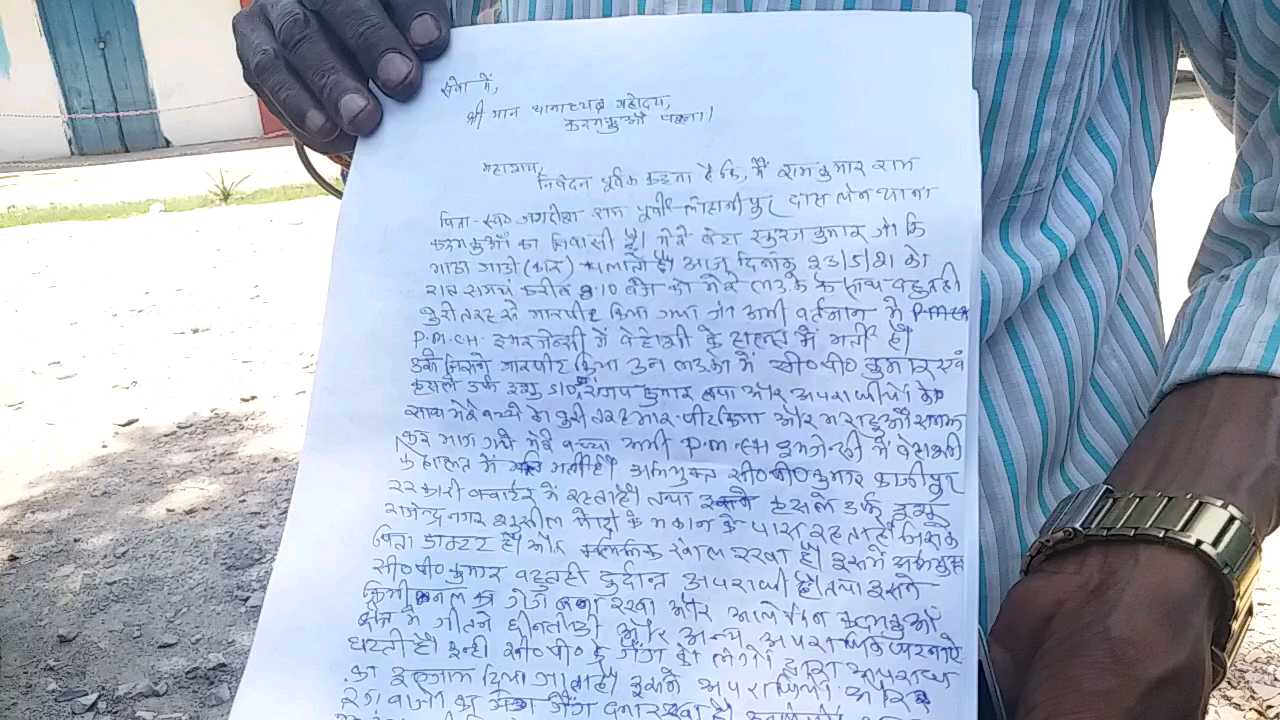 सेवा में,
श्री मान थानाध्यक्ष महोदय,
कदमकुआँ पटना।
महाशय,
निवेदन पूर्वक कहना है कि, मैं राम कुमार राम
पिता-स्व० जगदीश राम पूर्वी लोहानीपुर दास लेन थाना
कदमकुआँ का निवासी हूँ। मेरे बेटा कुमार जो कि
गाडी (कार) चलाता है। आज दिनांक 23/5/21 को
रात समय करीब 9:10 बजे को मेरे लड़के के साथ बहुत ही
बुरी तरह से मारपीट किया गया जो अभी वर्तमान में P.M.CH
P.M.CH. इमरजेन्सी में बेहोशी के हालत में भर्ती है।
मारपीट किया उन लडको में सी०पी० कुमार एवं
उर्फ कुमार तथा और अपराधीयों के
साथ मेरे बच्चे का बुरी तरह मार-पीट किया और मरा हुआ समझ
कर भाग गये मेरे बच्चा अभी P.M.CH इमर्जेन्सी में बेहोशी
के हालत में भर्ती है। अभियुक्त सी०पी० कुमार काजीपुर
सरकारी क्वार्टर में रहता है। तथा उर्फ
राजेन्द्रनगर सुशील मोदी के मकान के पास रहता है जिसके
पिता डाक्टर है। और क्लिनिक खोल रखा है। इसमें अभियुक्त
सी०पी० कुमार बहुत ही दुर्दान्त अपराधी है। तथा इसने
गैंग बना रखा और आये दिन कदमकुआँ
क्षेत्र में छीनतई और अन्य अपराधिक घटनाऐ
घटती है। इन्ही सी०पी० के गैंग के लोगों द्वारा अपराध
का इल्जाम दिया जाता है। इसने और
गैंग बना रखा है।